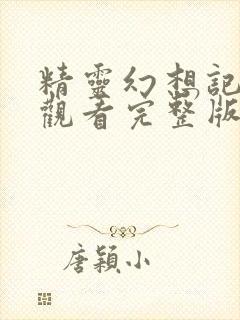 精靈幻想記
觀看完整版
唐穎小